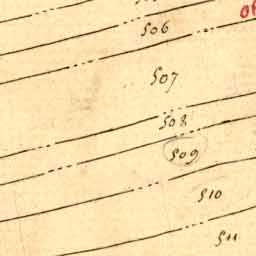 506
507
508
509
510
511